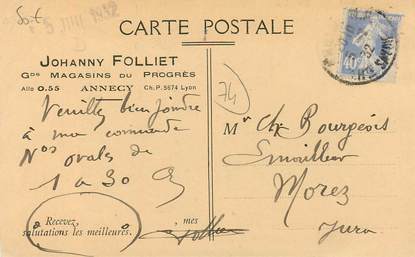 5 JUIL 1932
CARTE POSTALE
JOHANNY FOLLIET
Gds MAGASINS DU PROGRÈS
Allo 0.55 ANNECY Ch. P. 5674 Lyon
Veuillez bien joindre
à ma commande
Nos ovales de
1 à 30
Recevez, à mes
salutations les meilleures.
74
Mr Ch Bourgeois
Émailleur
Morez
Jura
40c